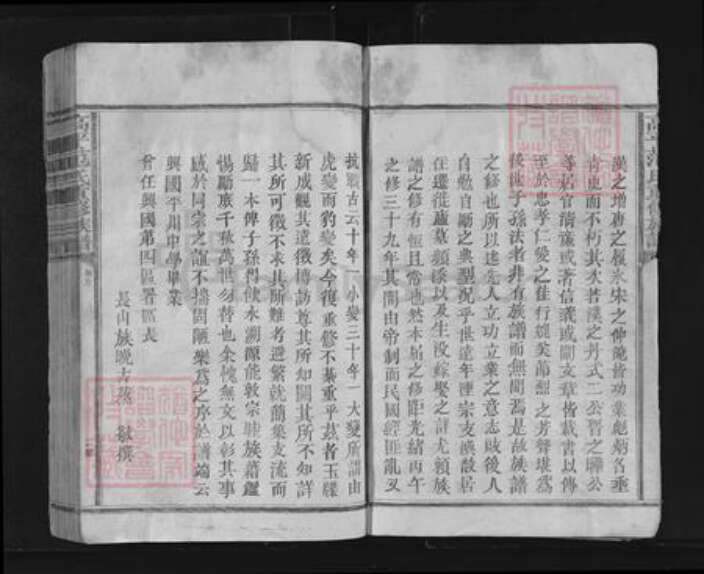 漢之增唐之履氷宋之仲淹皆功業彪炳名垂
青史而不朽其次若漢之丹式二公晉之
等居官清廉或著信義或闡文章皆載書以傳
至於忠孝仁愛之佳行媲美前烈之芳聲堪為
後世子孫法者非有族譜而無聞焉是故族譜
之修也所以述先人立功立業之意志啟後人
自勉自勵之典型況乎世遠年湮宗支渙散居
住遷徙廬墓頻添以及生没嫁娶之詳尤賴族
譜之修有恒且常也然本届之修距光緒丙午
之修三十九年其間由帝制而民國經匪亂又
抗戰古云十年一小變三十年一大變所謂由
虎變而豹變矣今復重修不綦重乎茲者玉牒
新成觀其遠徵博訪尊其所知闕其所不知詳
其所可徵不求其所難考避繁就簡集支流而
歸一本俾子孫得使永溯源能敦宗睦族藉鑑
惕勵庶千秋萬世勿替也余愧無文以彰其事
感於同宗之誼不揣固陋樂為之序於譜端云
興國平川中學畢業
曾任興國第四區署區長
長山族晚 敬撰